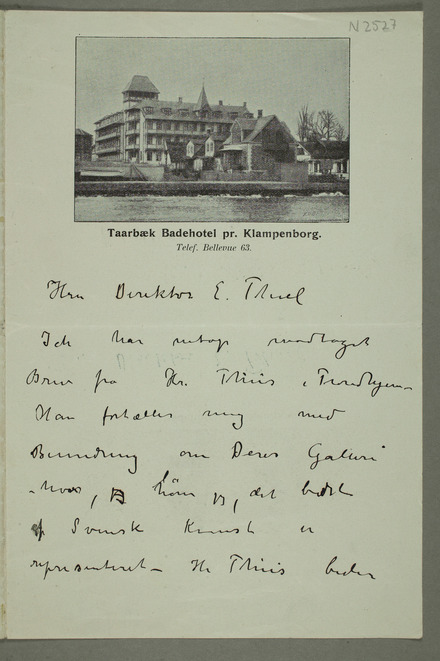 N 2527
Taarbæk Badehotel pr. Klampenborg.
Telef. Bellevue 63.
Herr Direktør E. Thiel
Jeh har netop modtaget
Brev fra Hr. Thiis i Trondhjem –
Han fortæller mig med
Beundring om Deres Galleri
– hvor, det bedste
af Svensk Kunst er
representeret – Hr Thiis beder